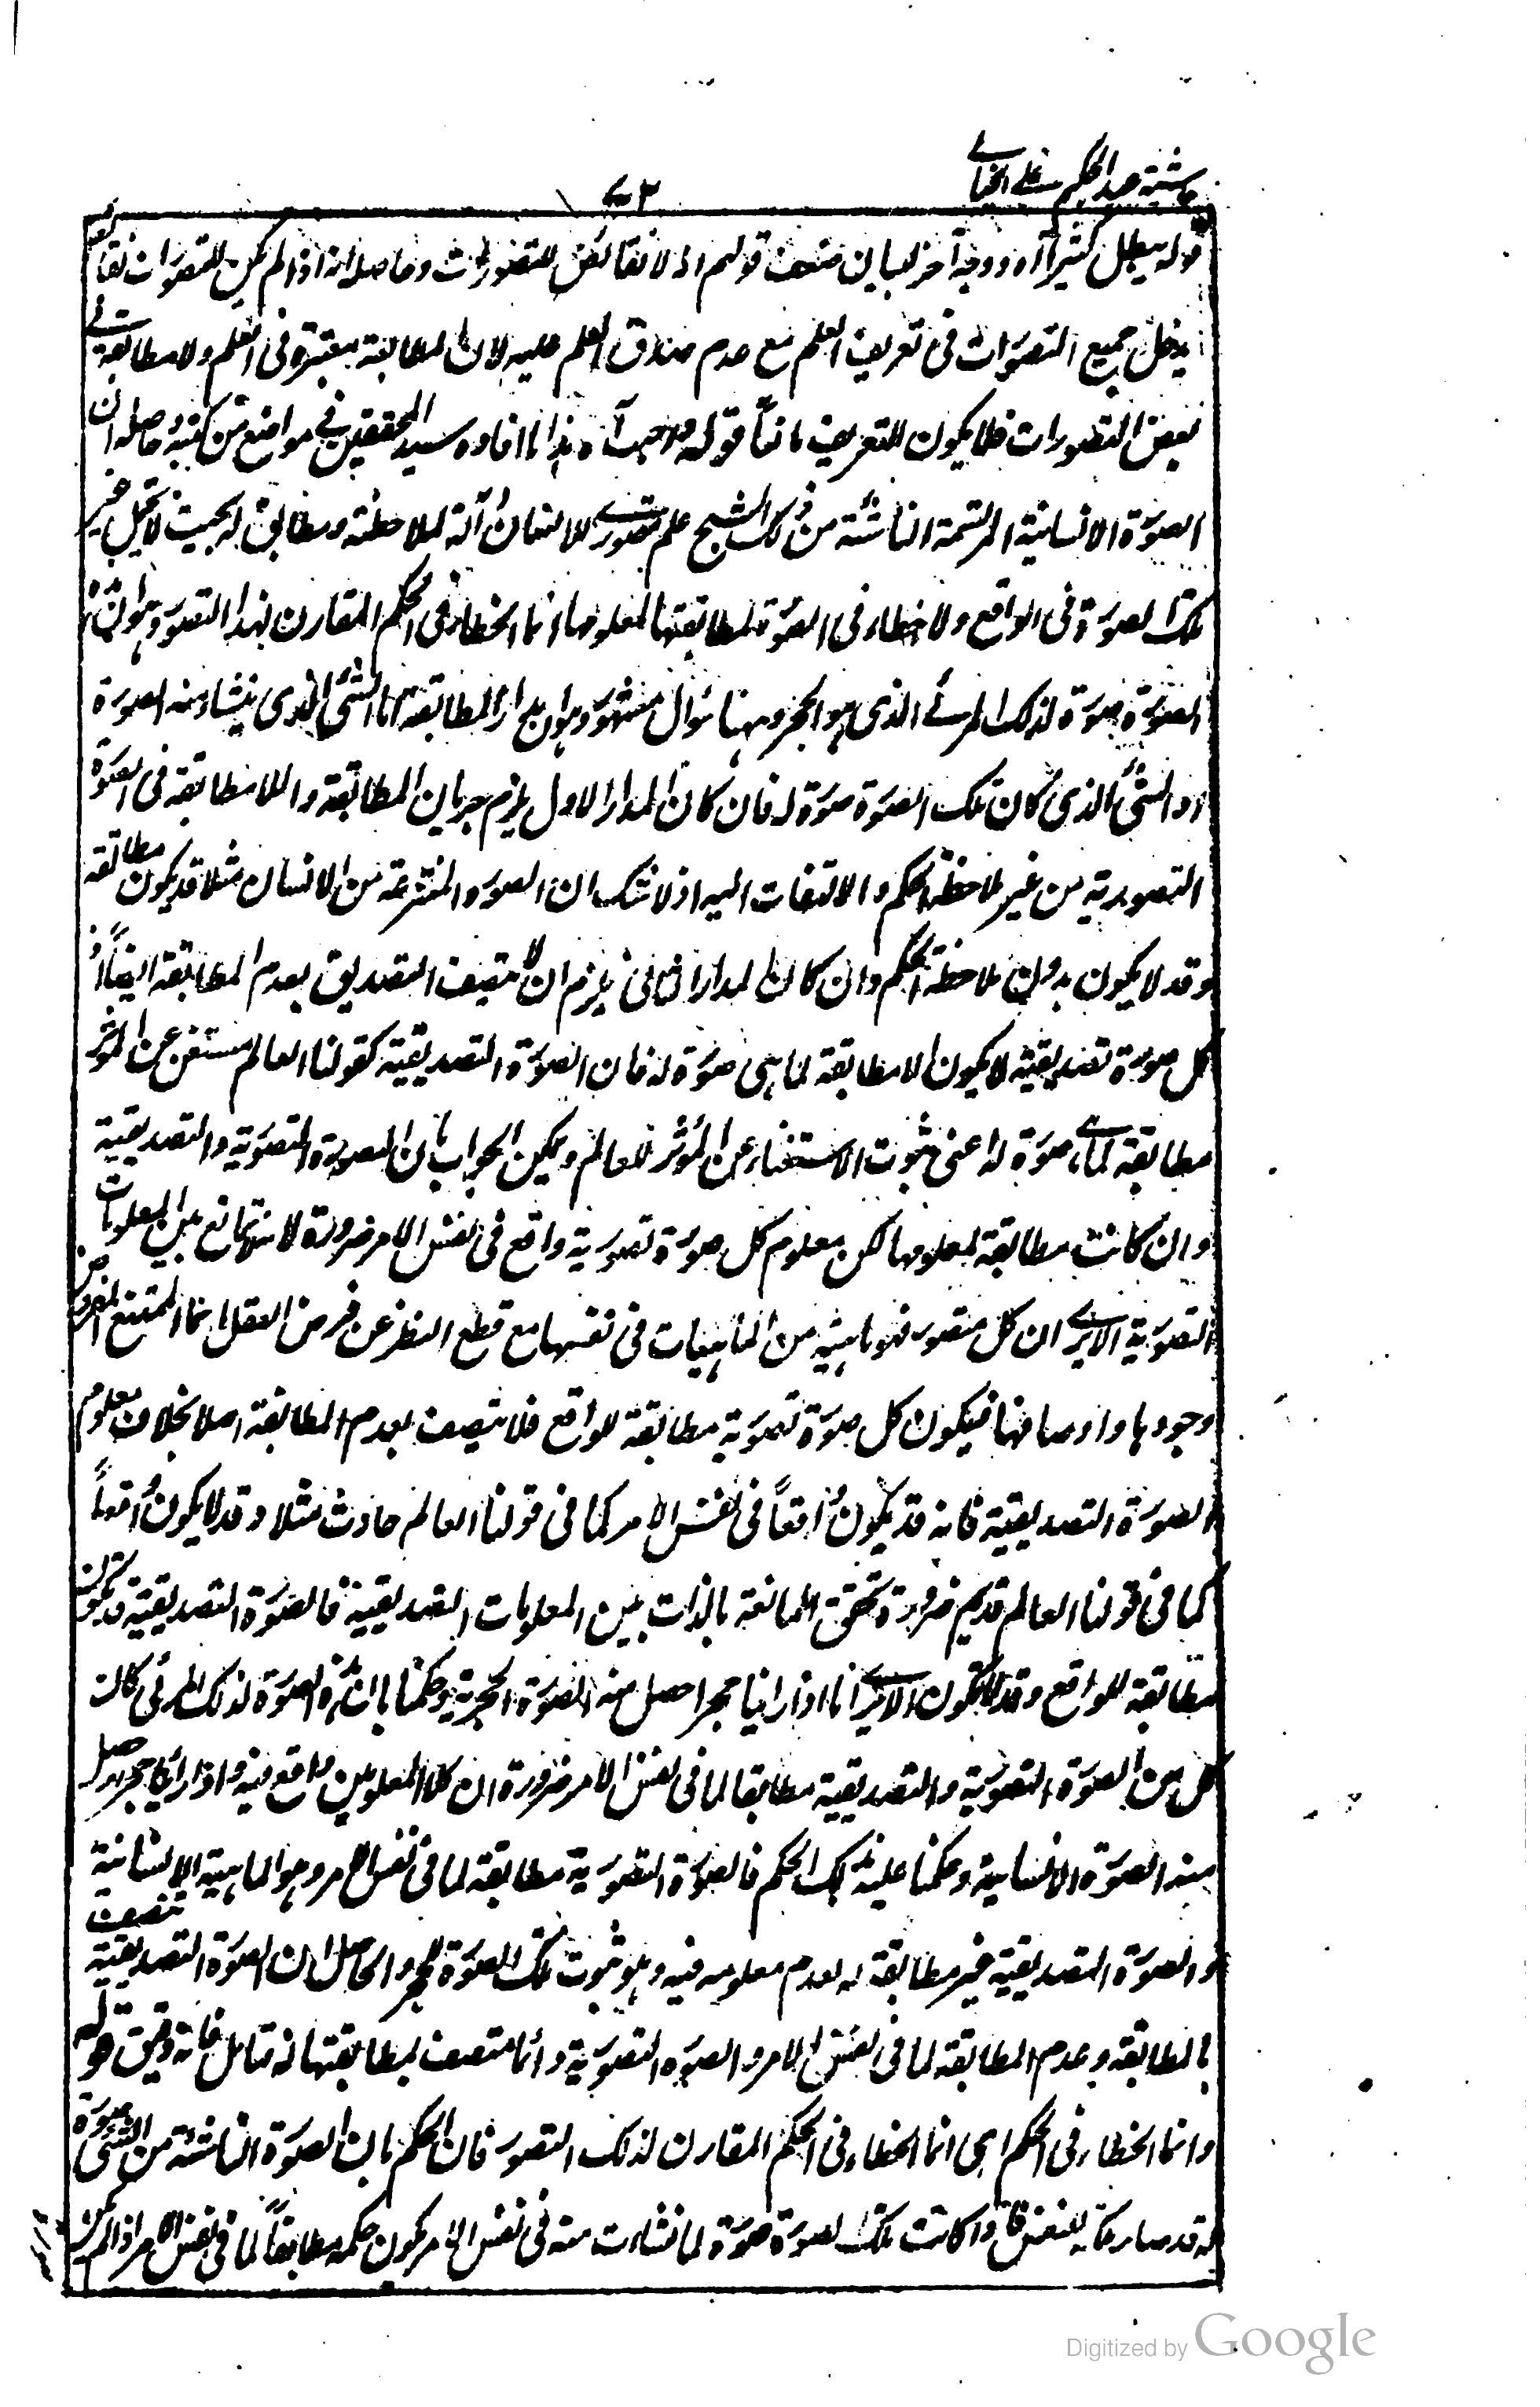 حاشية عبد الحكيم على الخيالي
٧٣
قوله يبطل كثيرا آه ووجه آخر لبيان ضعف قولهم اذ لا نقائض للتصورات وحاصله انه اذا لم يكن للتصورات نقائض
يدخل جميع التصورات فى تعريف العلم مع عدم صدق العلم عليه لان المطابقة معتبرة فى العلم ولا مطابقة فى
بعض التصورات فلا يكون للتعريف مانعاً قوله آه هذا ما افاده سيد المحققين فى مواضع من كتبه حاصله ان
الصورة الانسانية المرتسمة الناشئة من ذلك الشبح علم تصورى للانسان وآلة لملاحظته ومطابق له بحيث لا تحيل غير
تلك الصورة فى الواقع ولا خطاء فى الصورة لمطابقتها لمعلومها وانما الخطاء فى الحكم المقارن لهذا التصور وهو ان هذه
الصورة صورة لذلك المرئے الذى هو الحجر وههنا سوال مشهور وهو ان مدار المطابقة اما الشئ الذى ينشاء منه الصورة
او الشئ الذى كان تلك الصورة صورة له فان كان المدار الاول يلزم جريان المطابقة واللا مطابقة فى الصورة
التصورية من غير ملاحظة الحكم والالتفات اليه اذ لا شك ان الصورة المنتزعة من الانسان مثلا قد يكون مطابقة
وقد لا يكون بدون ملاحظة الحكم وان كان المدار الثانى يلزم ان لا يتصف التصديق بعدم المطابقة ايضاً اذ
كل صورة تصديقية لا يكون الا مطابقة لما هى صورة له فان الصورة التصديقية كقولنا العالم مستغن عن المؤثر
مطابقة لما هى صورة له اعنى ثبوت الاستغناء عن المؤثر للعالم ويمكن الجواب بان الصورة التصورية والتصديقية
وان كانت مطابقة لمعلومها لكن معلوم كل صورة تصورية واقع فى نفس الامر ضرورة لانه لا تمانع بين المعلومات
التصورية الا يرى ان كل متصور فهو ماهية من الماهيات فى نفسها مع قطع النظر عن فرض العقل انما الممتنع المفروض
وجودها واوصافها فيكون كل صورة تصورية مطابقة للواقع فلا يتصف بعدم المطابقة اصلا بخلاف معلوم
الصورة التصديقية فانه قد يكون واقعاً فى نفس الامر كما فى قولنا العالم حادث مثلا وقد لا يكون واقعاً
كما فى قولنا العالم قديم ضرورة تحقق الممانعة بالذات بين المعلومات التصديقية فالصورة التصديقية قد تكون
مطابقة للواقع وقد لا تكون الا يرى انا اذا راينا حجرا حصل منه الصورة الحجرية وحكمنا بان هذه الصورة لذلك المرئى كانت
كل من الصورة التصورية والتصديقية مطابقا لما فى نفس الامر ضرورة ان كلا المعلومين واقع فيه واذا راينا حجرا وحصل
منه الصورة الانسانية وحكمنا عليه بذلك الحكم فالصورة التصورية مطابقة لما فى نفس الامر وهو الماهية الانسانية
والصورة التصديقية غير مطابقة له لعدم معلومه فيه وهو ثبوت تلك الصورة للحجر والحاصل ان الصورة التصديقية تتصف
بالمطابقة وبعدم المطابقة لما فى نفس الامر والصورة التصورية دائما متصف بمطابقتها له تامل فانه دقيق قوله
وانما الخطاء فى الحكم اى انما الخطاء فى الحكم المقارن لذلك التصور فان الحكم بان الصورة الناشئة من الشئ صورة
له قد صار ملكة للنفس فاذا كانت تلك الصورة صورة لما نشاءت منه فى نفس الامر يكون حكمه مطابقاً لما فى نفس الامر واذا لم يكن
Digitized by Google